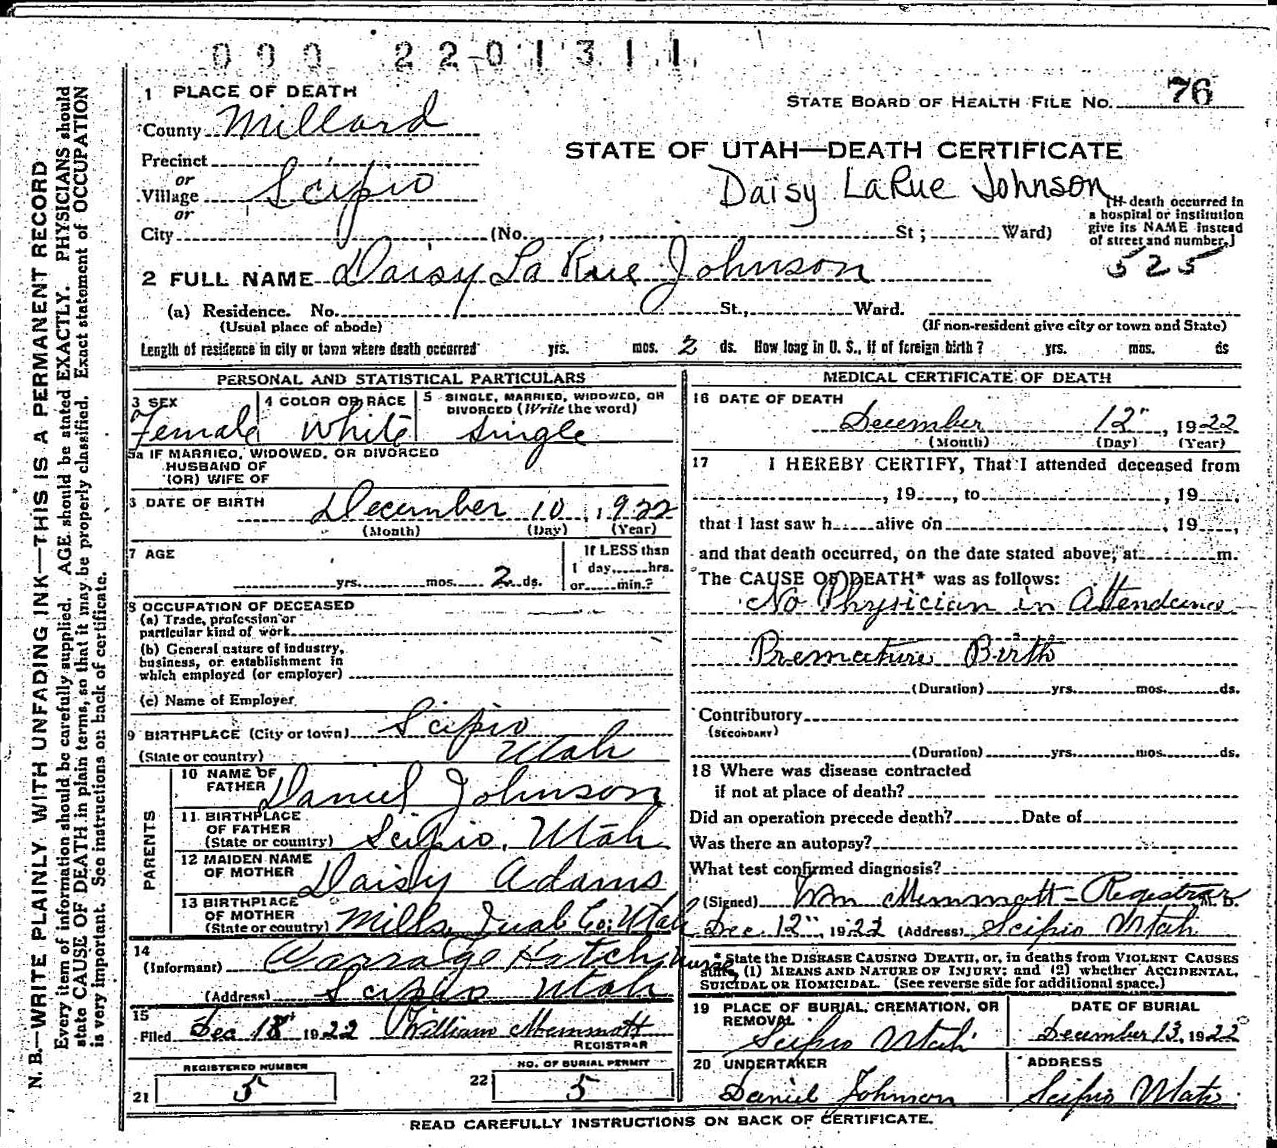 000 2201311
N. B.—WRITE PLAINLY, WITH UNFADING INK—THIS IS A PERMANENT RECORD
Every item of information should be carefully supplied. AGE should be stated EXACTLY. PHYSICIANS should
state CAUSE OF DEATH in plain terms, so that it may be properly classified. Exact statement of OCCUPATION
is very important. See instructions on back of certificate.
1 PLACE OF DEATH
STATE BOARD OF HEALTH FILE NO. 76
County Millard
STATE OF UTAH—DEATH CERTIFICATE
Precinct
or
Village Scipio
Daisy LaRue Johnson
or
City (No. , St ; Ward)
(If death occurred in
a hospital or institution
give its NAME instead
of street and number.)
525
2 FULL NAME Daisy La Rue Johnson
(a) Residence. No. St., Ward.
(Usual place of abode) (If non-resident give city or town and State)
Length of residence in city or town where death occurred yrs. mos. 2 ds. How long in U. S., if of foreign birth? yrs. mos. ds
PERSONAL AND STATISTICAL PARTICULARS
3 SEX
Female
4 COLOR OR RACE
White
5 SINGLE, MARRIED, WIDOWED, OR
DIVORCED (Write the word)
Single
5a IF MARRIED, WIDOWED, OR DIVORCED
HUSBAND OF
(OR) WIFE OF
6 DATE OF BIRTH December 10, 1922
(Month) (Day) (Year)
7 AGE
yrs. mos. 2 ds.
If LESS than
1 day, hrs.
or min.?
8 OCCUPATION OF DECEASED
(a) Trade, profession or
particular kind of work
(b) General nature of industry,
business, or establishment in
which employed (or employer)
(c) Name of Employer
9 BIRTHPLACE (City or town) Scipio
(State or country) Utah
PARENTS
10 NAME OF
FATHER Daniel Johnson
11 BIRTHPLACE
OF FATHER
(State or country) Scipio, Utah
12 MAIDEN NAME
OF MOTHER Daisy Adams
13 BIRTHPLACE
OF MOTHER
(State or country) Mills, Juab Co; Utah
14
(Informant) Hatch Nurse
(Address) Scipio Utah
15
Filed Dec 18" 1922 William Memmott
REGISTRAR
REGISTERED NUMBER
21 5
NO. OF BURIAL PERMIT
22 5
MEDICAL CERTIFICATE OF DEATH
16 DATE OF DEATH
December 12", 1922
(Month) (Day) (Year)
17 I HEREBY CERTIFY, That I attended deceased from
, 19 , to , 19 ,
that I last saw h alive on , 19 ,
and that death occurred, on the date stated above, at m.
The CAUSE OF DEATH* was as follows:
No Physician in Attendance
Premature Birth
(Duration) yrs. mos. ds.
Contributory
(SECONDARY)
(Duration) yrs. mos. ds.
18 Where was disease contracted
if not at place of death?
Did an operation precede death? Date of
Was there an autopsy?
What test confirmed diagnosis?
(Signed) Wm Memmott - Registrar
Dec. 12", 1922 (Address) Scipio Utah
* State the DISEASE CAUSING DEATH, or, in deaths from VIOLENT CAUSES
state, (1) MEANS AND NATURE OF INJURY; and (2) whether ACCIDENTAL,
SUICIDAL OR HOMICIDAL. (See reverse side for additional space.)
19 PLACE OF BURIAL, CREMATION, OR
REMOVAL
Scipio Utah
DATE OF BURIAL
December 13, 1922
20 UNDERTAKER
Daniel Johnson
ADDRESS
Scipio Utah
READ CAREFULLY INSTRUCTIONS ON BACK OF CERTIFICATE.